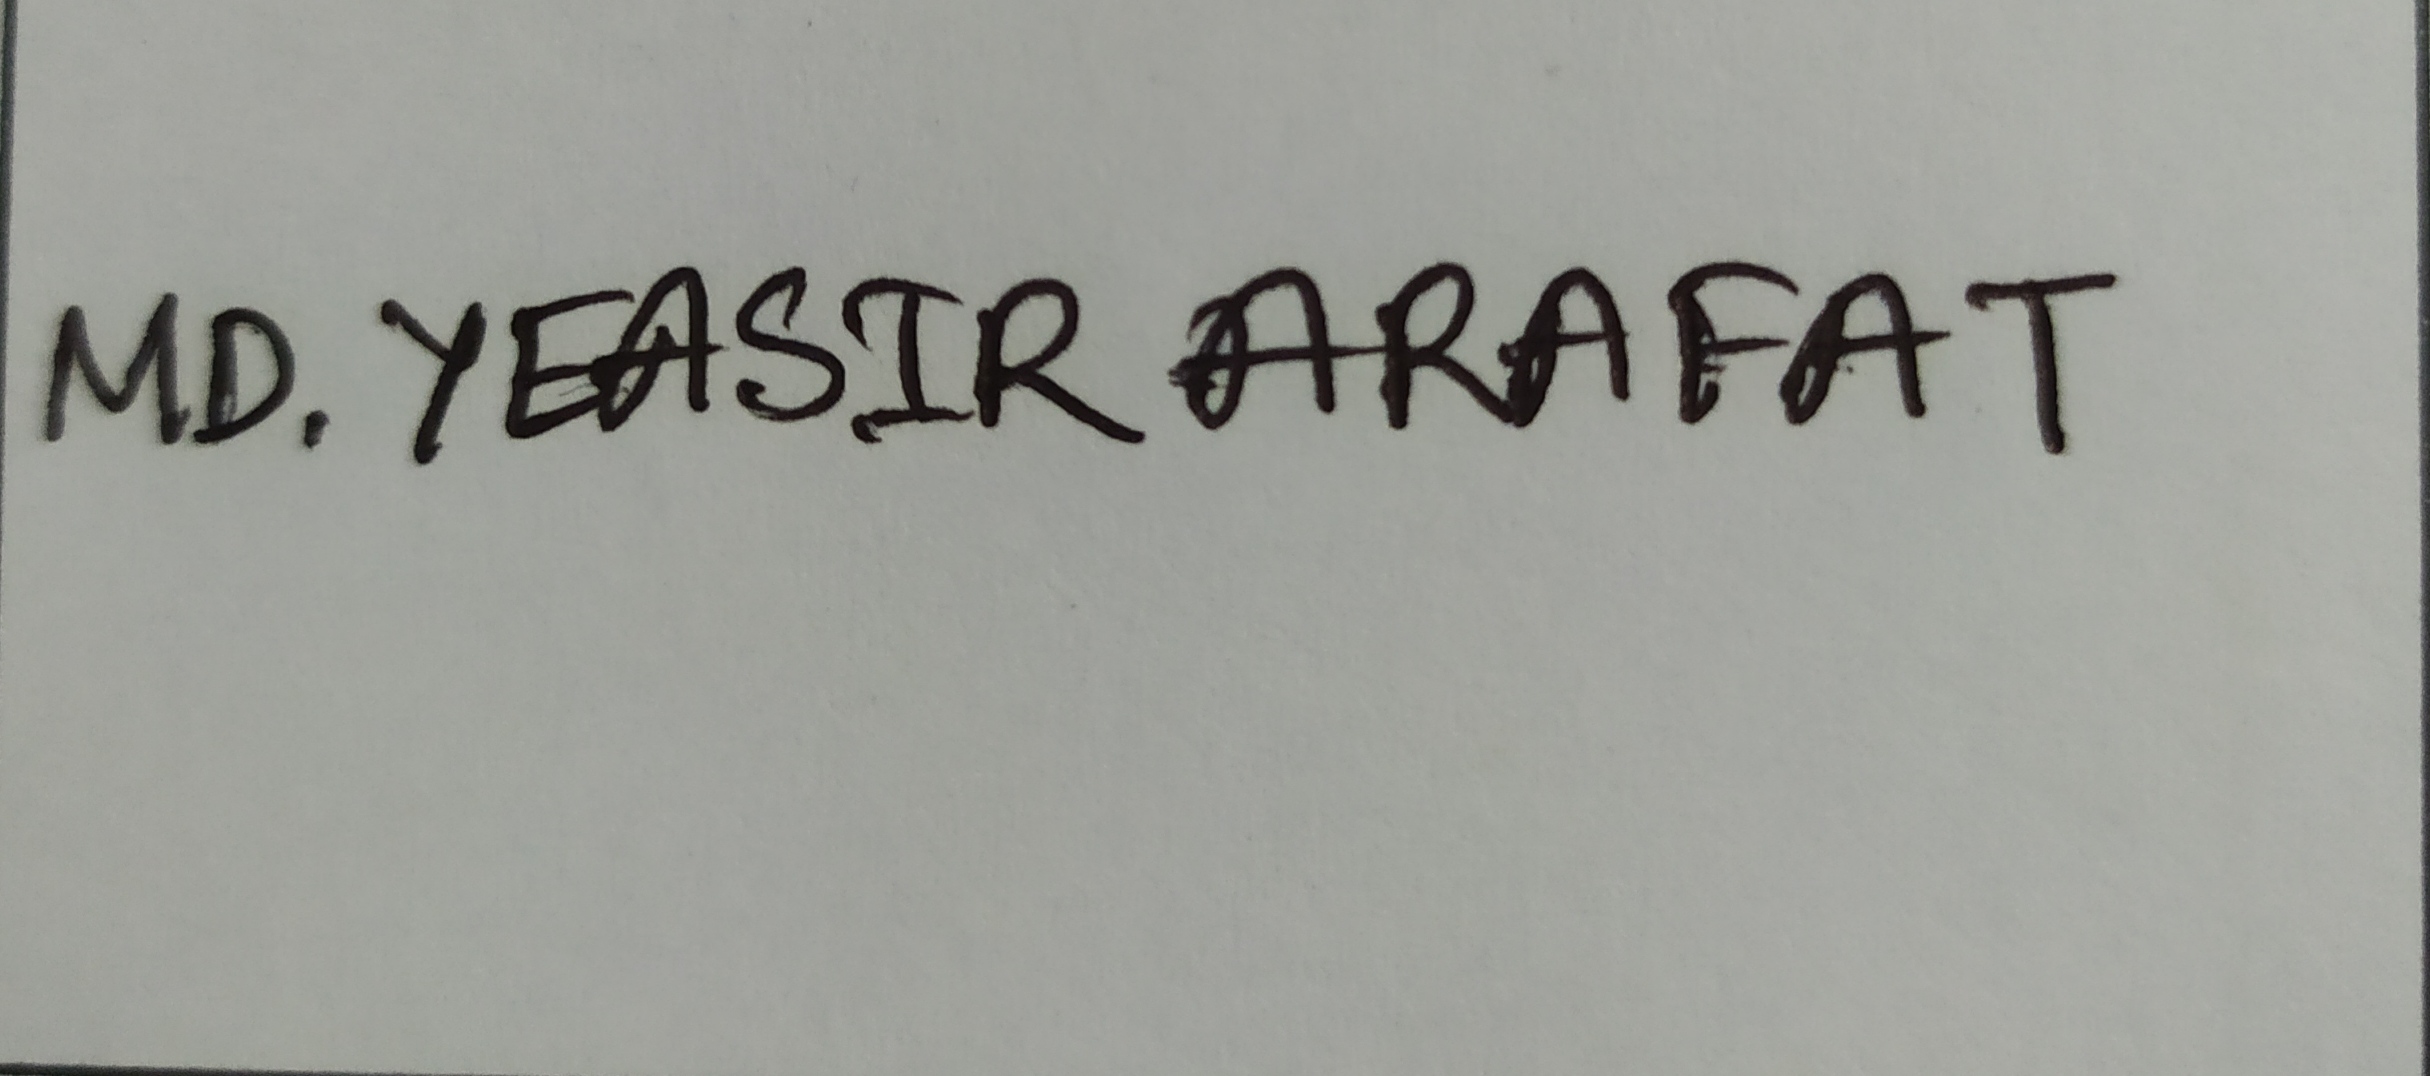 MD. YEASIR ARAFAT